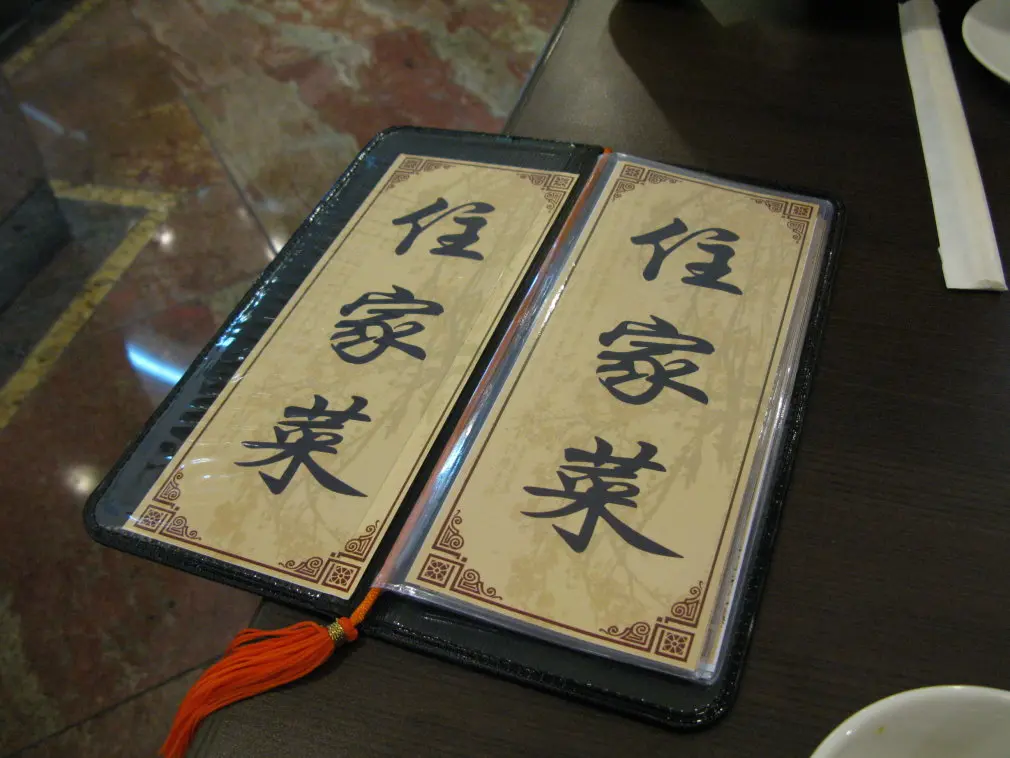 住家菜
住家菜